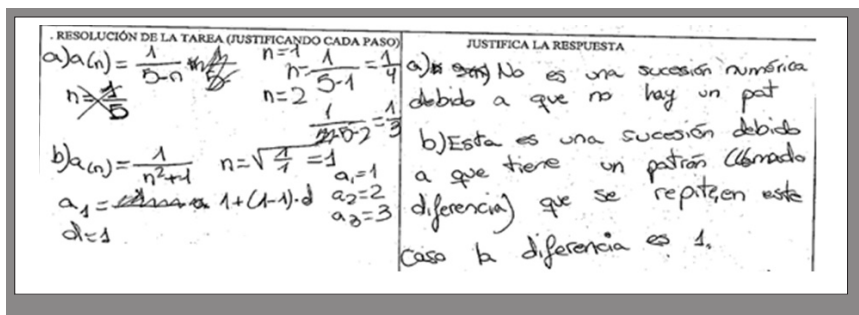 . RESOLUCIÓN DE LA TAREA (JUSTIFICANDO CADA PASO)
a) a(n) = 1/(5-n)
n=1
n= 1/(5-1) = 1/4
n=2
1/(5-2) = 1/3
b) a(n) = 1/(n²+1) n=√(1/1) = 1
a₁=1
a₁= 1+(1-1)·d a₂=2
a₃=3
d=1
JUSTIFICA LA RESPUESTA
a) No es una sucesión numérica
debido a que no hay un pat
b) Esta es una sucesión debido
a que tiene un patrón (llamado
diferencia) que se repite, en este
caso la diferencia es 1.